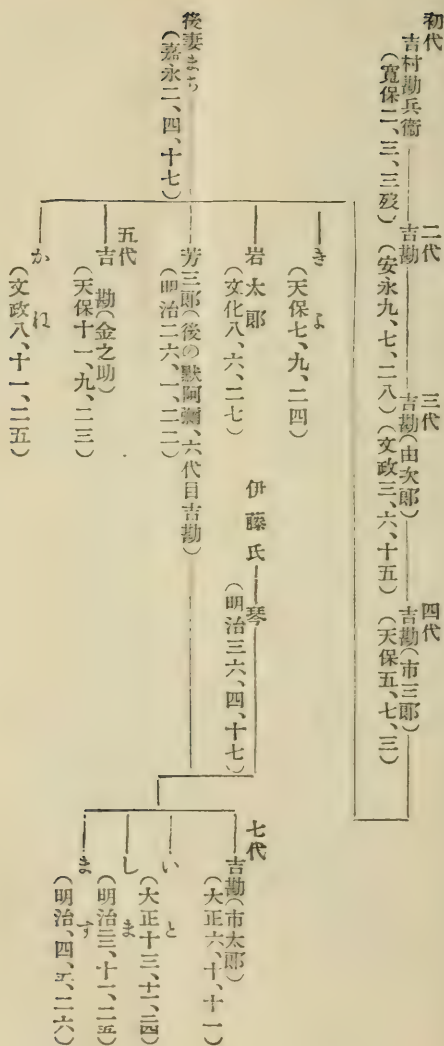 初代
吉村勘兵衞
(寬保二、三、三歿)
二代
吉勘
(安永九、七、二八)
三代
吉勘(由次郎)
(文政三、六、十五)
四代
吉勘(市三郎)
(天保五、七、三)
後妻まち
(嘉永二、四、十七)
きよ
(天保七、九、二四)
岩太郎
(文化八、六、二七)
芳三郎(後の默阿彌、六代目吉勘)
(明治二六、一、二二)
伊藤氏
琴
(明治三六、四、十七)
五代
吉勘(金之助)
(天保十一、九、二三)
かね
(文政八、十一、二五)
七代
吉勘(市太郎)
(大正六、十、十一)
いと
(大正十三、十一、二四)
しま
(明治三、十一、二五)
ます
(明治、四、五、二六)